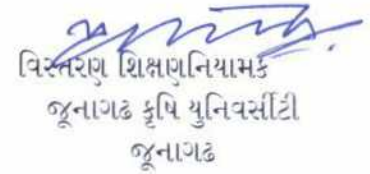 વિસ્તરણ શિક્ષણનિયામક
જૂનાગઢ કૃષિ યુનિવર્સીટી
જૂનાગઢ